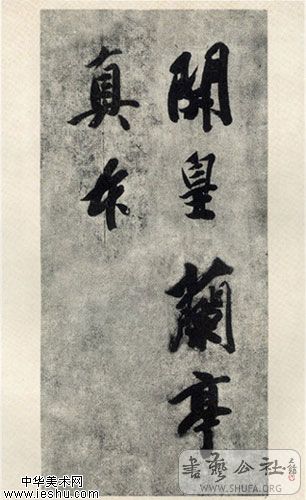 開皇蘭亭
真本
中华美术网
www.ieshu.com
書藝公社
WWW.SHUFA.ORG